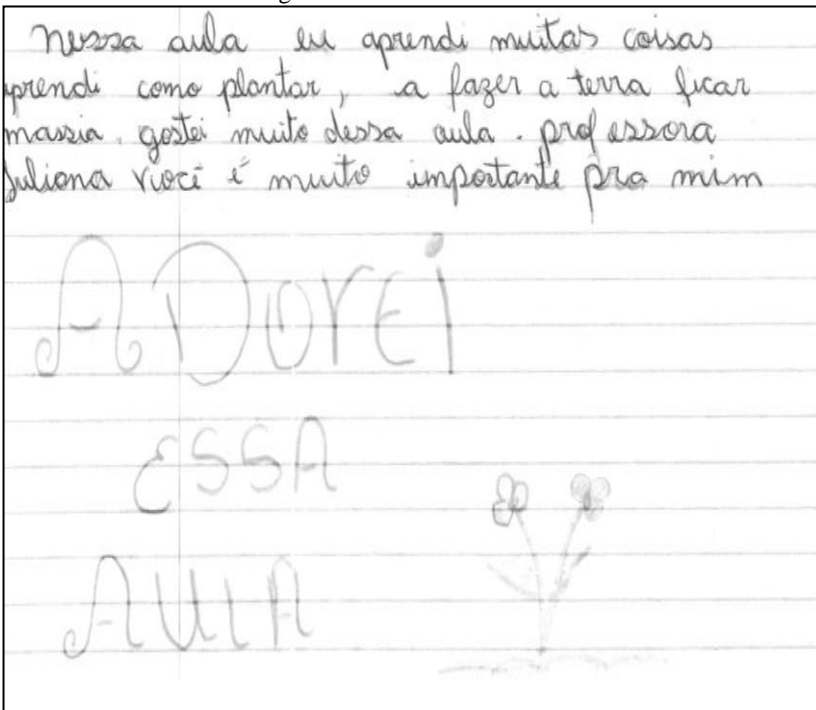 nessa aula eu aprendi muitas coisas
aprendi como plantar, a fazer a terra ficar
massia. gostei muito dessa aula. professora
Juliana você é muito importante pra mim
ADorEi
ESSA
AULA